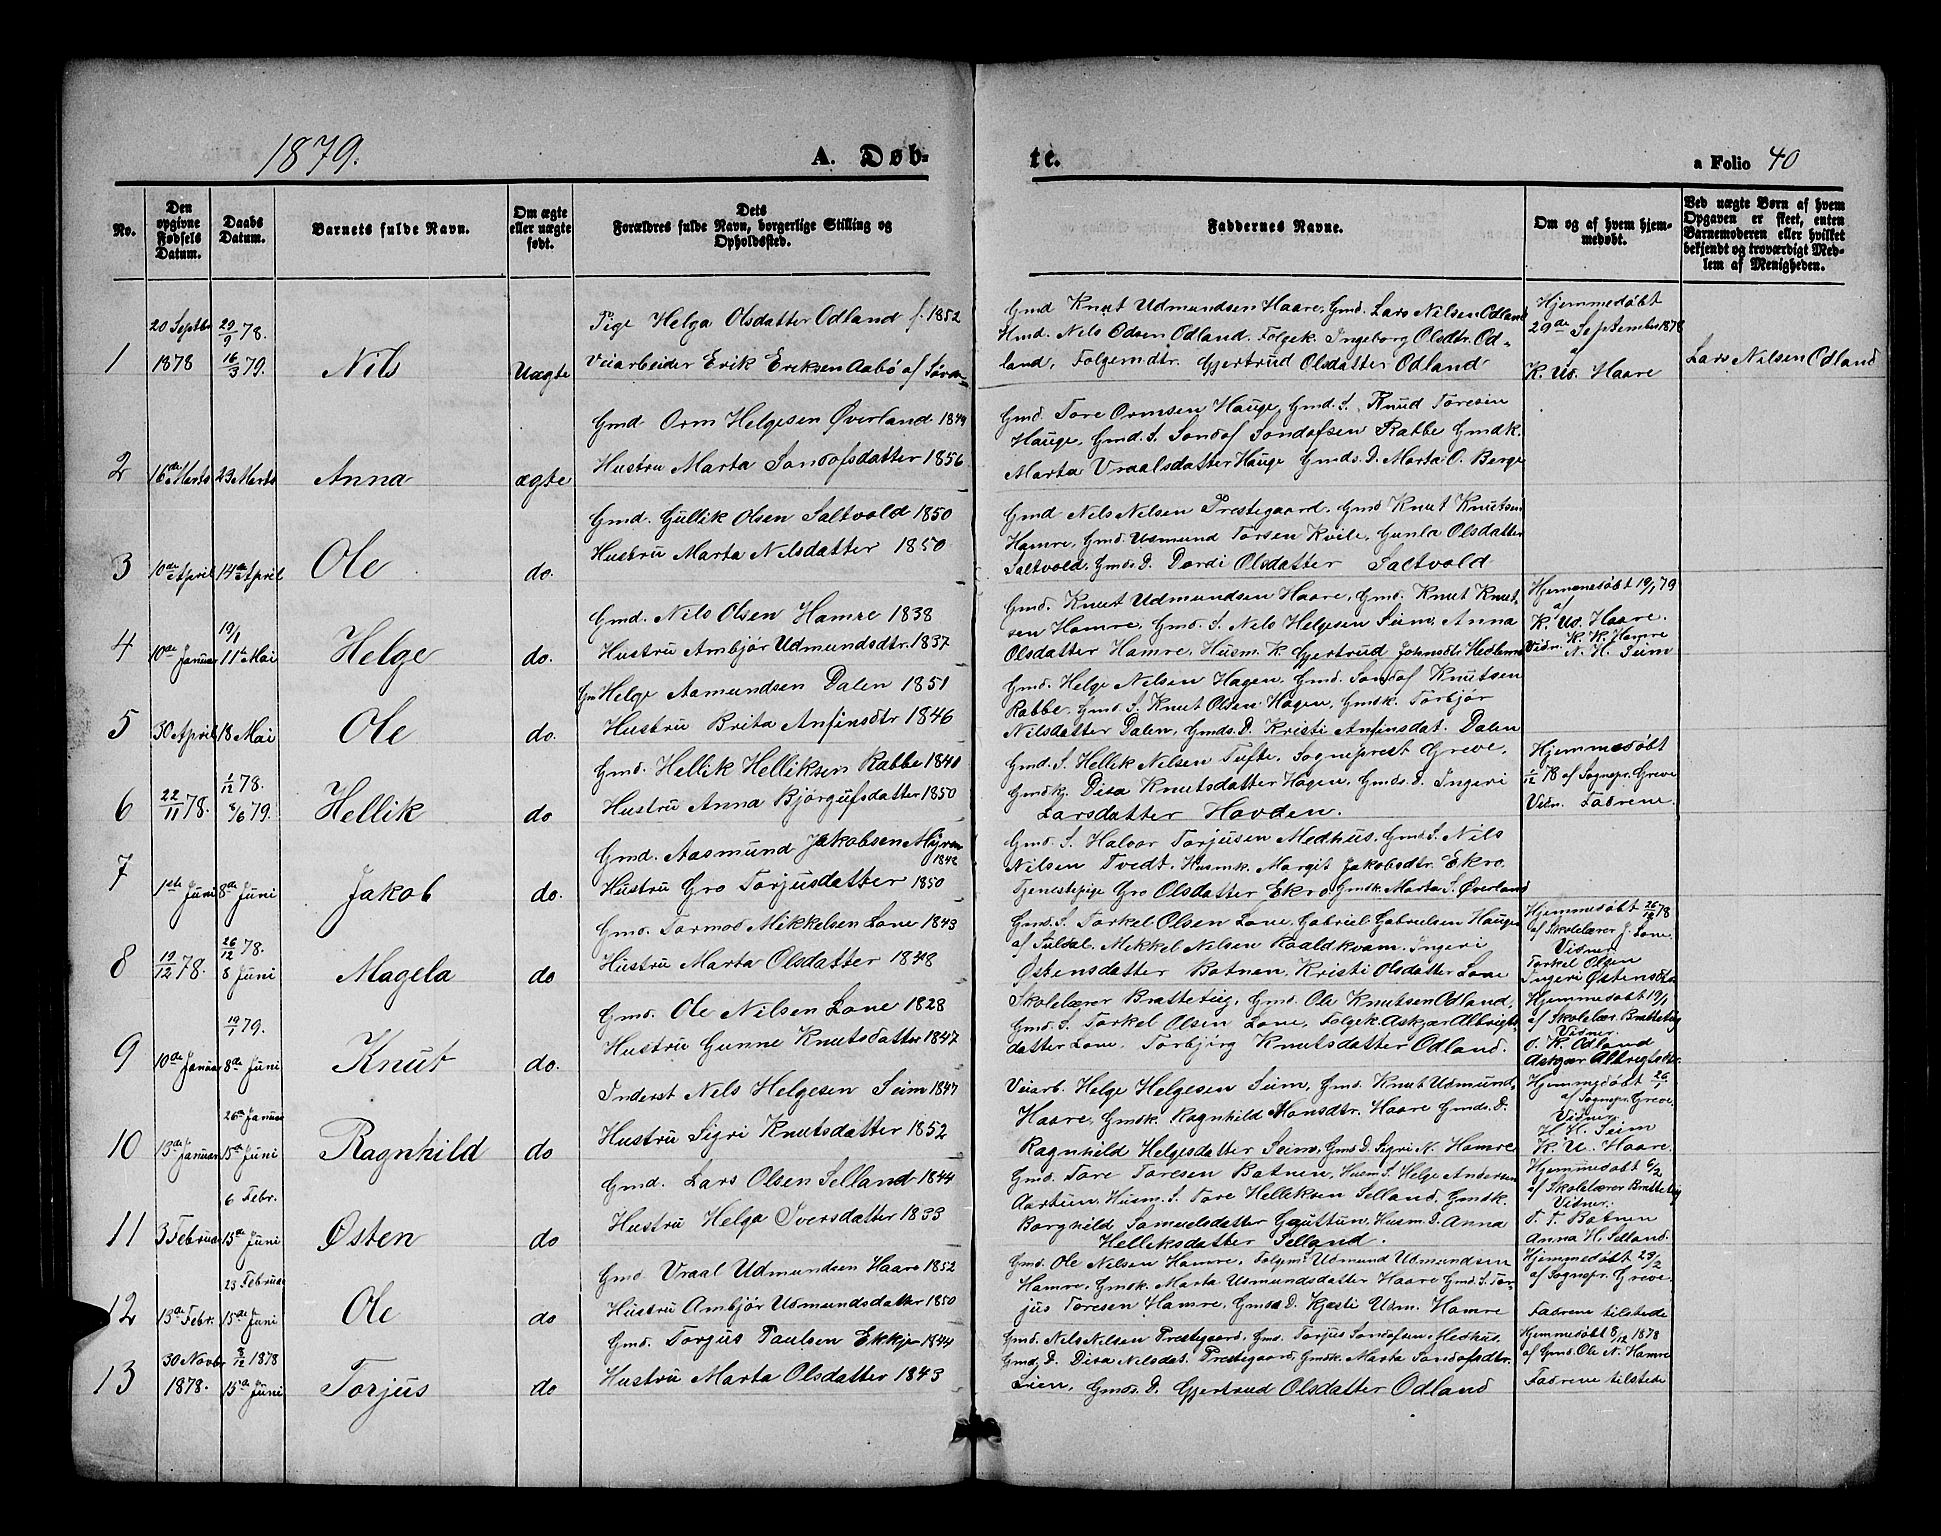 1879.
A. Døb-
te.
a Folio 40
No.
Den opgivne Fødsels Datum.
Daabs Datum.
Barnets fulde Navn.
Om ægte eller uægte født.
Dets Forældres fulde Navn, borgerlige Stilling og Opholdssted.
Faddernes Navne.
Om og af hvem hjemmedøbt.
Ved uægte Børn af hvem Opgaven er skeet, enten Barnemoderen eller hvilket bekjendt og troværdigt Medlem af Menigheden.
1
20 Septbr 1878
29/9 78.
16/3 79.
Nils
Uægte
Pige Helga Olsdatter Odland f. 1852
Veiarbeider Erik Eriksen Aabø af
Gmd Knut Udmundsen Haare, Gmd. Lars Nilsen Odland
Hmd. Nils Odsen Odland. Folgek. Ingeborg Olsdtr. Od-
land, Folgemdtr. Gjertrud Olsdatter Odland
Hjemmedøbt
29de September 1878
af
K. Ud. Haare
Lars Nilsen Odland
2
16de Marts
23 Marts
Anna
ægte
Gmd Orm Helgesen Øverland 1849
Hustru Marta Sondofsdatter 1856
Gmd. Tore Ormsen Hauge, Gmd. S. Knud Toresen
Hauge, Gmd. S. Sondof Sondofsen Rabbe Gmdk.
Marta Vraalsdatter Hauge Gmds. D. Marta O. Berge
3
10de April
14de April
Ole
do.
Gmd. Gullik Olsen Saltvold 1850
Hustru Marta Nilsdatter 1850
Gmd Nils Nilsen Prestegaard, Gmd Knut Knutsen
Hamre, Gmd. Udmund Torsen Kvile, Gunla Olsdatter
Saltvold, Gmds. D. Dordi Olsdatter Saltvold
4
10de Januar
19/1
11te Mai
Helge
do.
Gmd. Nils Olsen Hamre 1838
Hustru Ambjør Udmundsdtr. 1837
Gmd. Knut Udmundsen Haare, Gmd. Knut Knut-
sen Hamre, Gmd. S. Nils Helgesen Seim, Anna
Olsdatter Hamre, Husm. K. Gjertrud Johnsdtr
Hjemmedøbt 19/1 79
af
K. Ud. Haare.
Vidn. K. K. Hamre
N. H. Seim
5
30 April
18 Mai
Ole
do.
Gm Helge Aamundsen Dalen 1851
Hustru Brita Anfinsdtr 1846
Gmd. Helge Nilsen Hagen, Gmd. Sondof Knutsen
Rabbe, Gmd. S. Knut Olsen Hagen, Gmdk. Torbjør
Nilsdatter Dalen, Gmds. D. Kristi Anfinsdat. Dalen
6
22/11 78.
1/12 78.
8/6 79.
Hellik
do
Gmd. Hellik Helliksen Rabbe 1840
Hustru Anna Bjørgufsdatter 1850
Gmd. S. Hellik Nilsen Tufte, Sogneprest Greve,
Gmdk. Disa Knutsdatter Hagen, Gmds. D. Ingeri
Larsdatter Hovden.
Hjemmedøbt
1/12 78 af Sognepr. Greve
Vidn. Fadrene.
7
1ste Juni
8de Juni
Jakob
do.
Gmd. Aasmund Jakobsen Myren 1842
Hustru Gro Torjusdatter 1850
Gmd. S. Halvor Torjusen Medhus, Gmd. S. Nils
Nilsen Tvedt, Husmk. Margit Jakobsdtr. Ekro,
Tjenestepige Gro Olsdatter Ekro, Gmdk. Marta S. Øverland
8
19/12 78.
26/12 78.
8 Juni
Magela
do
Gmd. Tormod Mikkelsen Lone 1843
Hustru Marta Olsdatter 1848
Gmd. S. Torkel Olsen Lone, Gabriel Gabrielsen Hauge
af Suldal. Mikkel Nilsen Roaldkvam. Ingeri
Østensdatter Botnen, Kristi Olsdatter Lone
Hjemmedøbt 26/12 78
af Skolelærer J. Lone.
Vidner
Torkel Olsen
Ingeri Østensdtr
9
10de Januar
19/1 79.
8de Juni
Knut
do.
Gmd. Ole Nilsen Lone 1828
Hustru Gunne Knutsdatter 1847
Skolelærer Bratteteig, Gmd. Ole Knutsen Odland,
Gmd. S. Torkel Olsen Lone, Folgek. Askjær Albrigts-
datter Lone, Torbjørg Knutsdatter Odland.
Hjemmedøbt 19/1
af Skolelær. Bratteteig
Vidner.
O. K. Odland
Askjær Albrigtsdtr
10
13de Januar
26de Januar
15de Juni
Ragnhild
do
Inderst Nils Helgesen Seim 1847
Hustru Sigri Knutsdatter 1852
Veiarb. Helge Helgesen Seim, Gmd. Knut Udmund-
Haare, Gmdk. Ragnhild Monsdtr. Haare Gmds. D.
Ragnhild Helgesdatter Seim, Gmds D. Sigri N. Hamre
Hjemmedøbt 26/1
af Sognepr. Greve.
Vidner.
H. H. Seim
K. U. Haare.
11
3 Februar
6 Febr.
15de Juni
Østen
do
Gmd. Lars Olsen Selland 1844
Hustru Helga Iversdatter 1833
Gmd. Tore Toresen Botnen, Husm. S. Helge Andersen
Aartun, Husm. S. Tore Helliksen Selland, Gmdk.
Borghild Samuelsdatter Gauttun, Husm. D. Anna
Helliksdatter Selland.
Hjemmedøbt 6/2
af Skolelærer Bratteteig
Vidner.
T. T. Botnen
Anna H. Selland.
12
13de Febr.
23 Februar
15de Juni
Ole
do
Gmd. Vraal Udmundsen Haare 1852
Hustru Ambjør Udmundsdatter 1850
Gmd. Ole Nilsen Hamre, Folgem. Udmund Udmundsen
Hamre, Gmdk. Marta Udmundsdatter Haare Gmd. S. Tor-
jus Toresen Hamre, Gmds D. Kjæsti Udm. Hamre
Hjemmedøbt 23/2
af Sognepr. Greve.
Fadrene tilstede
13
30 Novbr 1878.
8/12 1878
15de Juni
Torjus
do
Gmd. Torjus Paulsen Ekkje 1844
Hustru Marta Olsdatter 1843
Gmd. Nils Nilsen Prestegaard, Gmd. Torjus Sondofsen Medhus,
Gmd. D. Disa Nilsdat. Prestegaard, Gmdk. Marta Sondofsdtr.
Lien, Gmds. D. Gjertrud Olsdatter Odland
Hjemmedøbt 8/12 1878
af Gmd. Ole N. Hamre
Fadrene tilstede